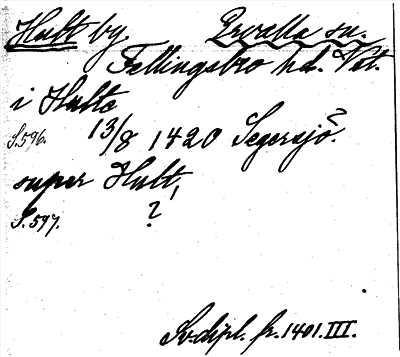 Hult by. Ervalla sn.
Fellingsbro hd. Vstm.
i Hulte
S.596. 13/8 1420 Segersjö?
super Hult,
S.597. ?
Sv. dipl. fr. 1401. III.